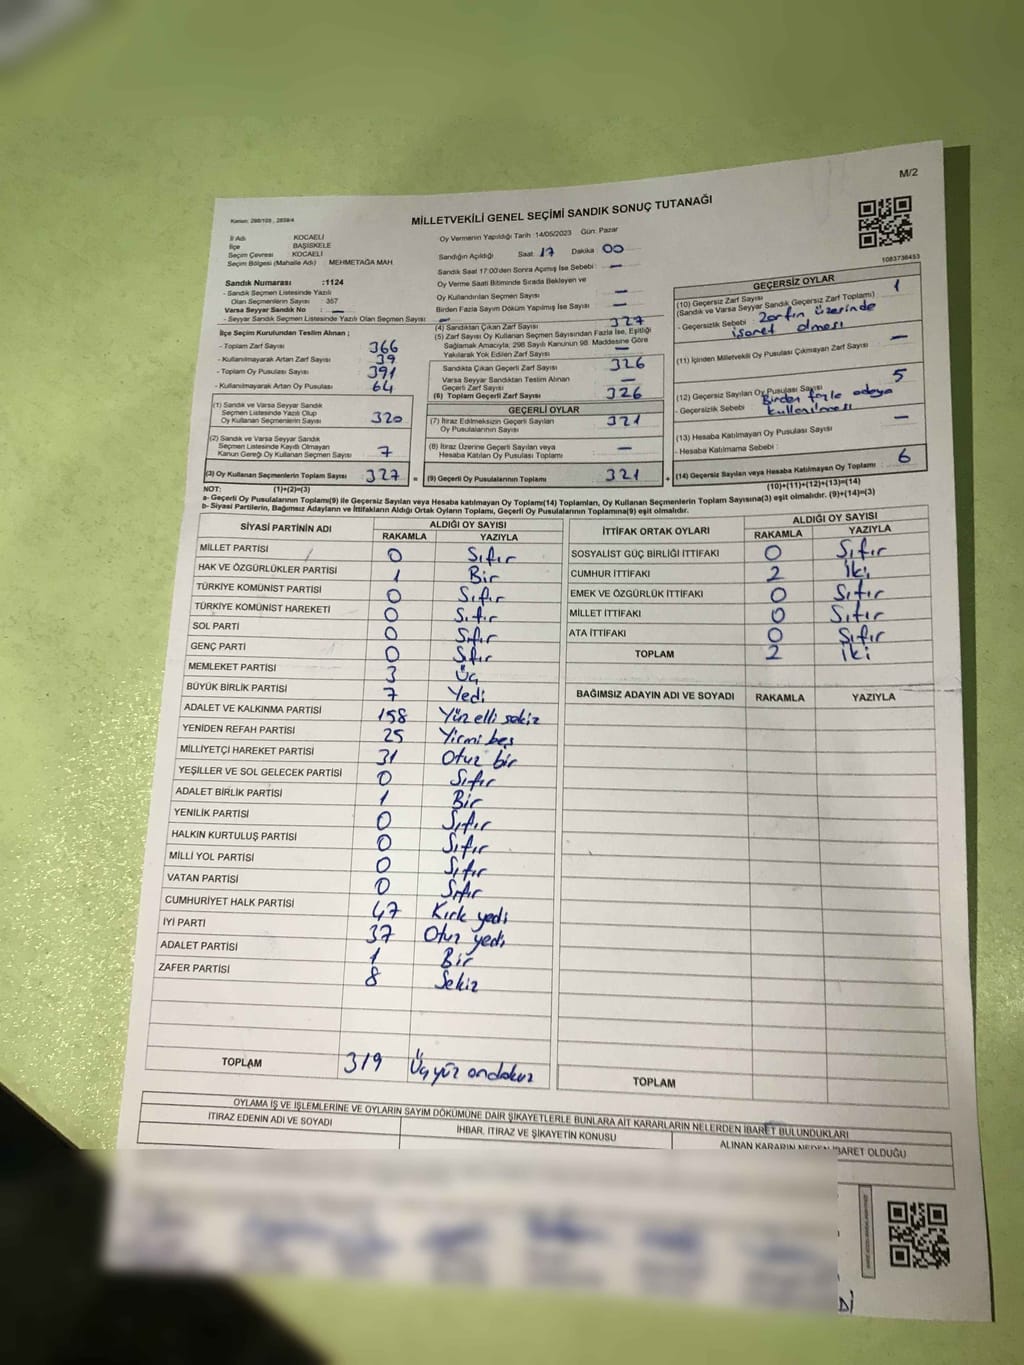 M/2
Kanun: 298/105 , 2839/4
MİLLETVEKİLİ GENEL SEÇİMİ SANDIK SONUÇ TUTANAĞI
İl Adı : KOCAELİ
İlçe : BAŞİSKELE
Seçim Çevresi : KOCAELİ
Seçim Bölgesi (Mahalle Adı) : MEHMETAĞA MAH.
Sandık Numarası :1124
- Sandık Seçmen Listesinde Yazılı
Olan Seçmenlerin Sayısı : 357
Varsa Seyyar Sandık No : —
- Seyyar Sandık Seçmen Listesinde Yazılı Olan Seçmen Sayısı : —
İlçe Seçim Kurulundan Teslim Alınan ;
- Toplam Zarf Sayısı : 366
- Kullanılmayarak Artan Zarf Sayısı : 39
- Toplam Oy Pusulası Sayısı : 391
- Kullanılmayarak Artan Oy Pusulası : 64
(1) Sandık ve Varsa Seyyar Sandık
Seçmen Listesinde Yazılı Olup
Oy Kullanan Seçmenlerin Sayısı : 320
(2) Sandık ve Varsa Seyyar Sandık
Seçmen Listesinde Kaydı Olmayan
Kanun Gereği Oy Kullanan Seçmen Sayısı : 7
(3) Oy Kullanan Seçmenlerin Toplam Sayısı : 327 =
Oy Vermenin Yapıldığı Tarih : 14/05/2023 Gün: Pazar
Sandığın Açıldığı Saat : 17 Dakika : 00
Sandık Saat 17:00'den Sonra Açımış İse Sebebi : —
Oy Verme Saati Bitiminde Sırada Bekleyen ve
Oy Kullandırılan Seçmen Sayısı : —
Birden Fazla Sayım Döküm Yapılmış İse Sayısı : —
(4) Sandıktan Çıkan Zarf Sayısı : 327
(5) Zarf Sayısı Oy Kullanan Seçmen Sayısından Fazla İse, Eşitliği
Sağlamak Amacıyla, 298 Sayılı Kanunun 98. Maddesine Göre
Yakılarak Yok Edilen Zarf Sayısı : —
Sandıkta Çıkan Geçerli Zarf Sayısı : 326
Varsa Seyyar Sandıktan Teslim Alınan
Geçerli Zarf Sayısı : —
(6) Toplam Geçerli Zarf Sayısı : 326
GEÇERLİ OYLAR
(7) İtiraz Edilmeksizin Geçerli Sayılan
Oy Pusulalarının Sayısı : 321
(8) İtiraz Üzerine Geçerli Sayılan veya
Hesaba Katılan Oy Pusulası Toplamı : —
(9) Geçerli Oy Pusulalarının Toplamı : 321 +
1083736453
GEÇERSİZ OYLAR
(10) Geçersiz Zarf Sayısı : 1
(Sandık ve Varsa Seyyar Sandık Geçersiz Zarf Toplamı)
- Geçersizlik Sebebi : Zarfın üzerinde
işaret olması
(11) İçinden Milletvekili Oy Pusulası Çıkmayan Zarf Sayısı : —
(12) Geçersiz Sayılan Oy Pusulası Sayısı : 5
- Geçersizlik Sebebi : Birden fazla adaya
kullanılması
(13) Hesaba Katılmayan Oy Pusulası Sayısı : —
- Hesaba Katılmama Sebebi :
(14) Geçersiz Sayılan veya Hesaba Katılmayan Oy Toplamı : 6
NOT: (1)+(2)=(3) (10)+(11)+(12)+(13)=(14)
a- Geçerli Oy Pusulalarının Toplamı(9) ile Geçersiz Sayılan veya Hesaba katılmayan Oy Toplamı(14) Toplamları, Oy Kullanan Seçmenlerin Toplam Sayısına(3) eşit olmalıdır. (9)+(14)=(3)
b- Siyasi Partilerin, Bağımsız Adayların ve İttifakların Aldığı Ortak Oyların Toplamı, Geçerli Oy Pusulalarının Toplamına(9) eşit olmalıdır.
SİYASİ PARTİNİN ADI ALDIĞI OY SAYISI
RAKAMLA YAZIYLA
MİLLET PARTİSİ 0 Sıfır
HAK VE ÖZGÜRLÜKLER PARTİSİ 1 Bir
TÜRKİYE KOMÜNİST PARTİSİ 0 Sıfır
TÜRKİYE KOMÜNİST HAREKETİ 0 Sıfır
SOL PARTİ 0 Sıfır
GENÇ PARTİ 0 Sıfır
MEMLEKET PARTİSİ 3 Üç
BÜYÜK BİRLİK PARTİSİ 7 Yedi
ADALET VE KALKINMA PARTİSİ 158 Yüz elli sekiz
YENİDEN REFAH PARTİSİ 25 Yirmi beş
MİLLİYETÇİ HAREKET PARTİSİ 31 Otuz bir
YEŞİLLER VE SOL GELECEK PARTİSİ 0 Sıfır
ADALET BİRLİK PARTİSİ 1 Bir
YENİLİK PARTİSİ 0 Sıfır
HALKIN KURTULUŞ PARTİSİ 0 Sıfır
MİLLİ YOL PARTİSİ 0 Sıfır
VATAN PARTİSİ 0 Sıfır
CUMHURİYET HALK PARTİSİ 47 Kırk yedi
İYİ PARTİ 37 Otuz yedi
ADALET PARTİSİ 1 Bir
ZAFER PARTİSİ 8 Sekiz
TOPLAM 319 Üçyüz ondokuz
İTTİFAK ORTAK OYLARI ALDIĞI OY SAYISI
RAKAMLA YAZIYLA
SOSYALİST GÜÇ BİRLİĞİ İTTİFAKI 0 Sıfır
CUMHUR İTTİFAKI 2 İki
EMEK VE ÖZGÜRLÜK İTTİFAKI 0 Sıfır
MİLLET İTTİFAKI 0 Sıfır
ATA İTTİFAKI 0 Sıfır
TOPLAM 2 İki
BAĞIMSIZ ADAYIN ADI VE SOYADI RAKAMLA YAZIYLA
TOPLAM
OYLAMA İŞ VE İŞLEMLERİNE VE OYLARIN SAYIM DÖKÜMÜNE DAİR ŞİKAYETLERLE BUNLARA AİT KARARLARIN NELERDEN İBARET BULUNDUKLARI
İTİRAZ EDENİN ADI VE SOYADI İHBAR, İTİRAZ VE ŞİKAYETİN KONUSU ALINAN KARARIN NEDEN İBARET OLDUĞU